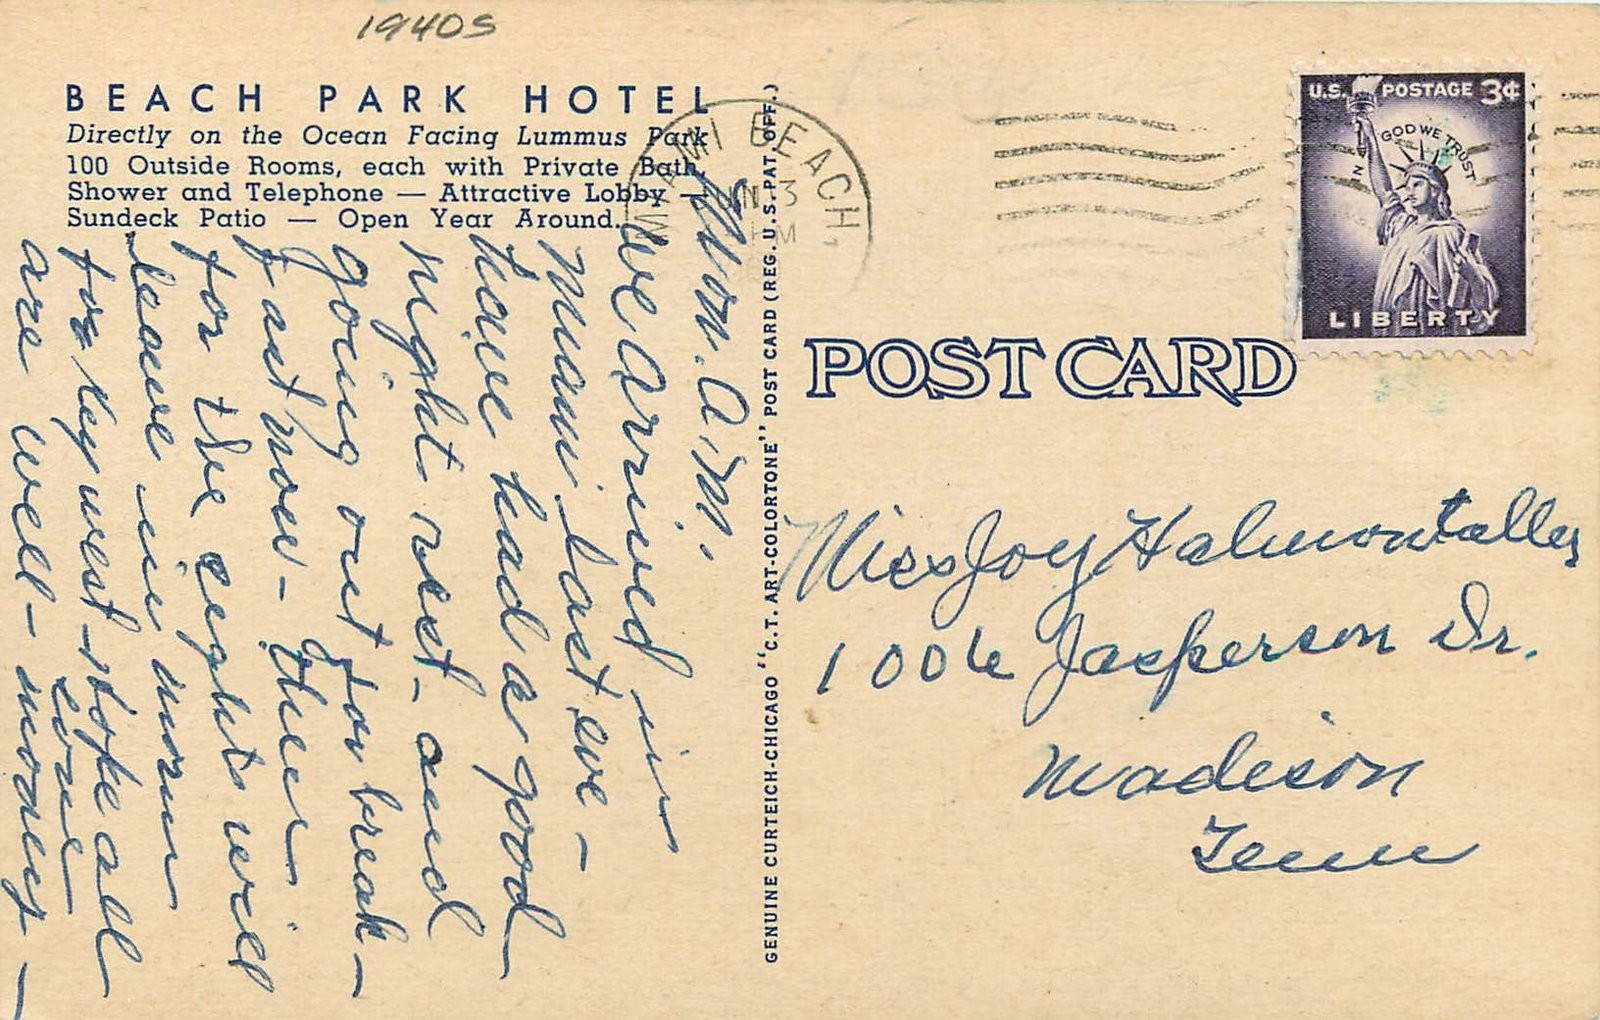 1940s
BEACH PARK HOTEL
Directly on the Ocean Facing Lummus Park
100 Outside Rooms, each with Private Bath,
Shower and Telephone — Attractive Lobby —
Sundeck Patio — Open Year Around.
MIAMI BEACH,
3
PM
U.S. POSTAGE 3¢
IN GOD WE TRUST
LIBERTY
POST CARD
GENUINE CURTEICH-CHICAGO "C.T. ART-COLORTONE" POST CARD (REG. U.S. PAT. OFF.)
Mon. A.M.
We Arrived in
Miami last eve –
have had a good
night rest – and
going out for break –
fast now – then
for the sights will
leave in morn
for Key west – hope all
are well –
Love
Miss Joy
1006 Jasperson Dr.
Madison
Tenn